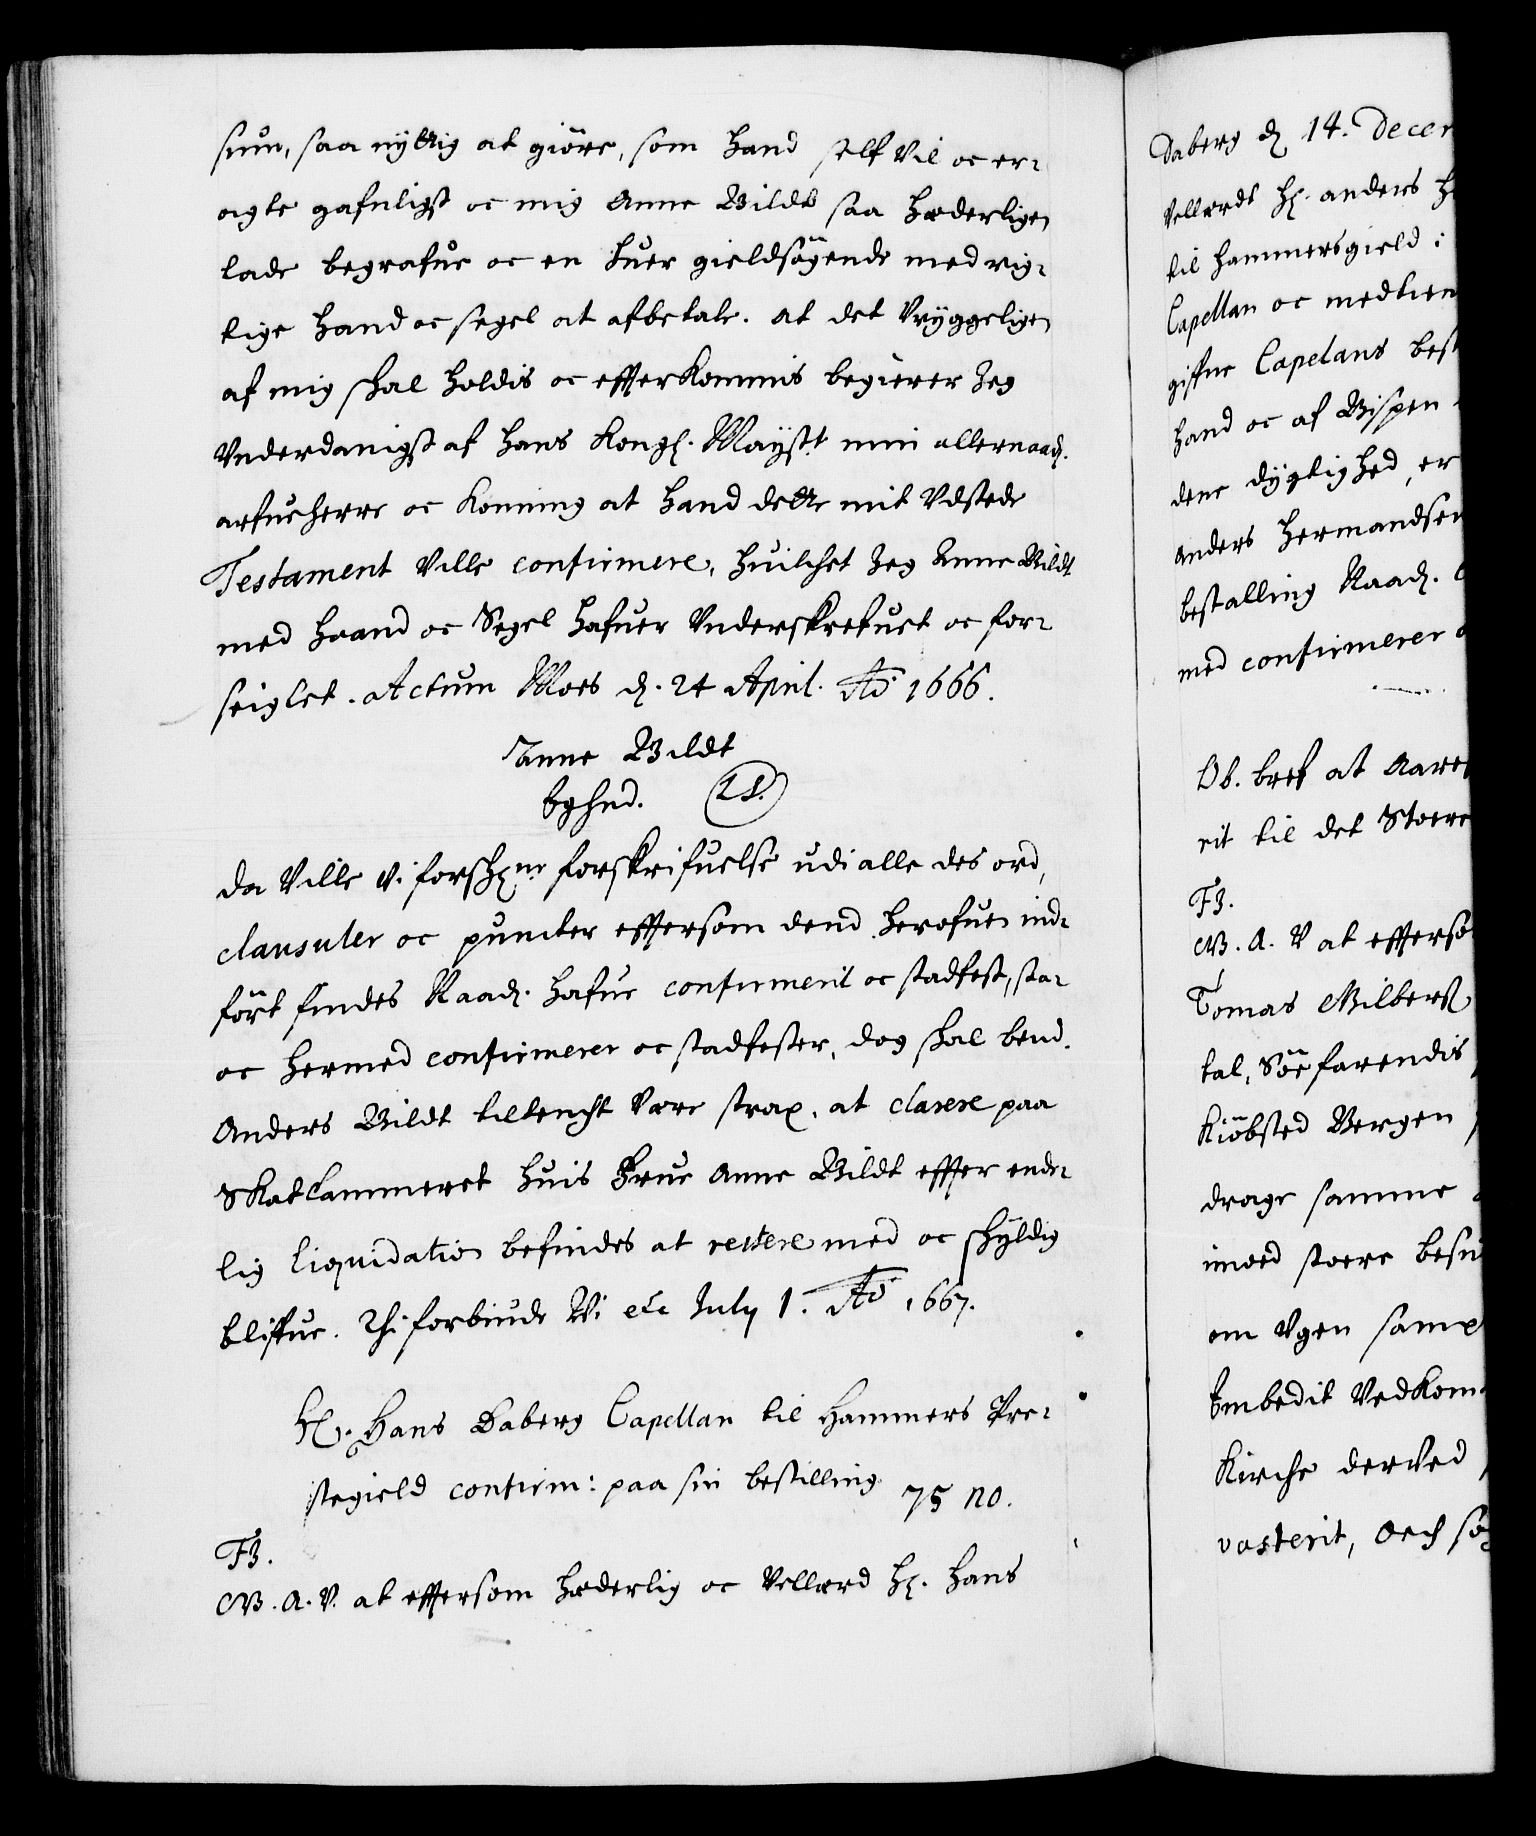 sinn, saa nyttig at giöre, som hand self vil oc er-
agte gafnligst oc mig Anne Bildt saa hæderligen
lade begrafue oc en huer gieldsögende med rig-
tige hand oc segel at afbetale. at det Vryggeligen
af mig skal holdis oc efterkommis begierer Jeg
Vnderdanigst af hans Kongl. Mayst. min allernaadr.
arfueherre oc Konning at hand dette mit Vdstede
Testament Ville confirmere, huilchet Jeg Anne Bildt
med haand oc Segel hafuer Vnderskrefuet oc for-
seiglet. Actum Moes d. 24 April. Ao 1666.
Anne Bildt
Eghnd. L S.
da Ville Vi forschr.ne forskrifuelse udi alle des ord,
clausuler oc puncter eftersom dend herofuen ind-
fört findes Naadr. hafue confirmerit oc stadfest, saa-
oc hermed confirmerer oc stadfester, dog skal bemd.
Anders Bildt tiltencht Være strax, at clarere paa
Skatcammeret huis Frue Anne Bildt efter ende-
lig liqvidation befindes at restere med oc skyldig
blifue. Thi forbiude Vi etc July 1. Ao 1667.
Hr. Hans Daberg Capellan til Hammers Pre-
stegield confirm: paa sin bestilling 75 no.
F3.
G. A. V. at eftersom hæderlig oc Vellærd Hr. Hans
Daberg d. 14. Decem
Vellærdt Hr. anders H
til hammersgield i
Capellan oc medtien
gifne Capelans best
hand oc af Bispen
dene dygtighed, er
Anders Hermandsen
bestalling Naadr.
med confirmerer
Ob. bref at Aare
rit til det Stoere
F3.
G. A. V at efterso
Tomas
tal, Söefarendis
Kiöbsted Bergen
drage samme
imod stoere besu
om Vgen samp
Embedit Vedkom
Kirche derVed
vosterit, Och saa